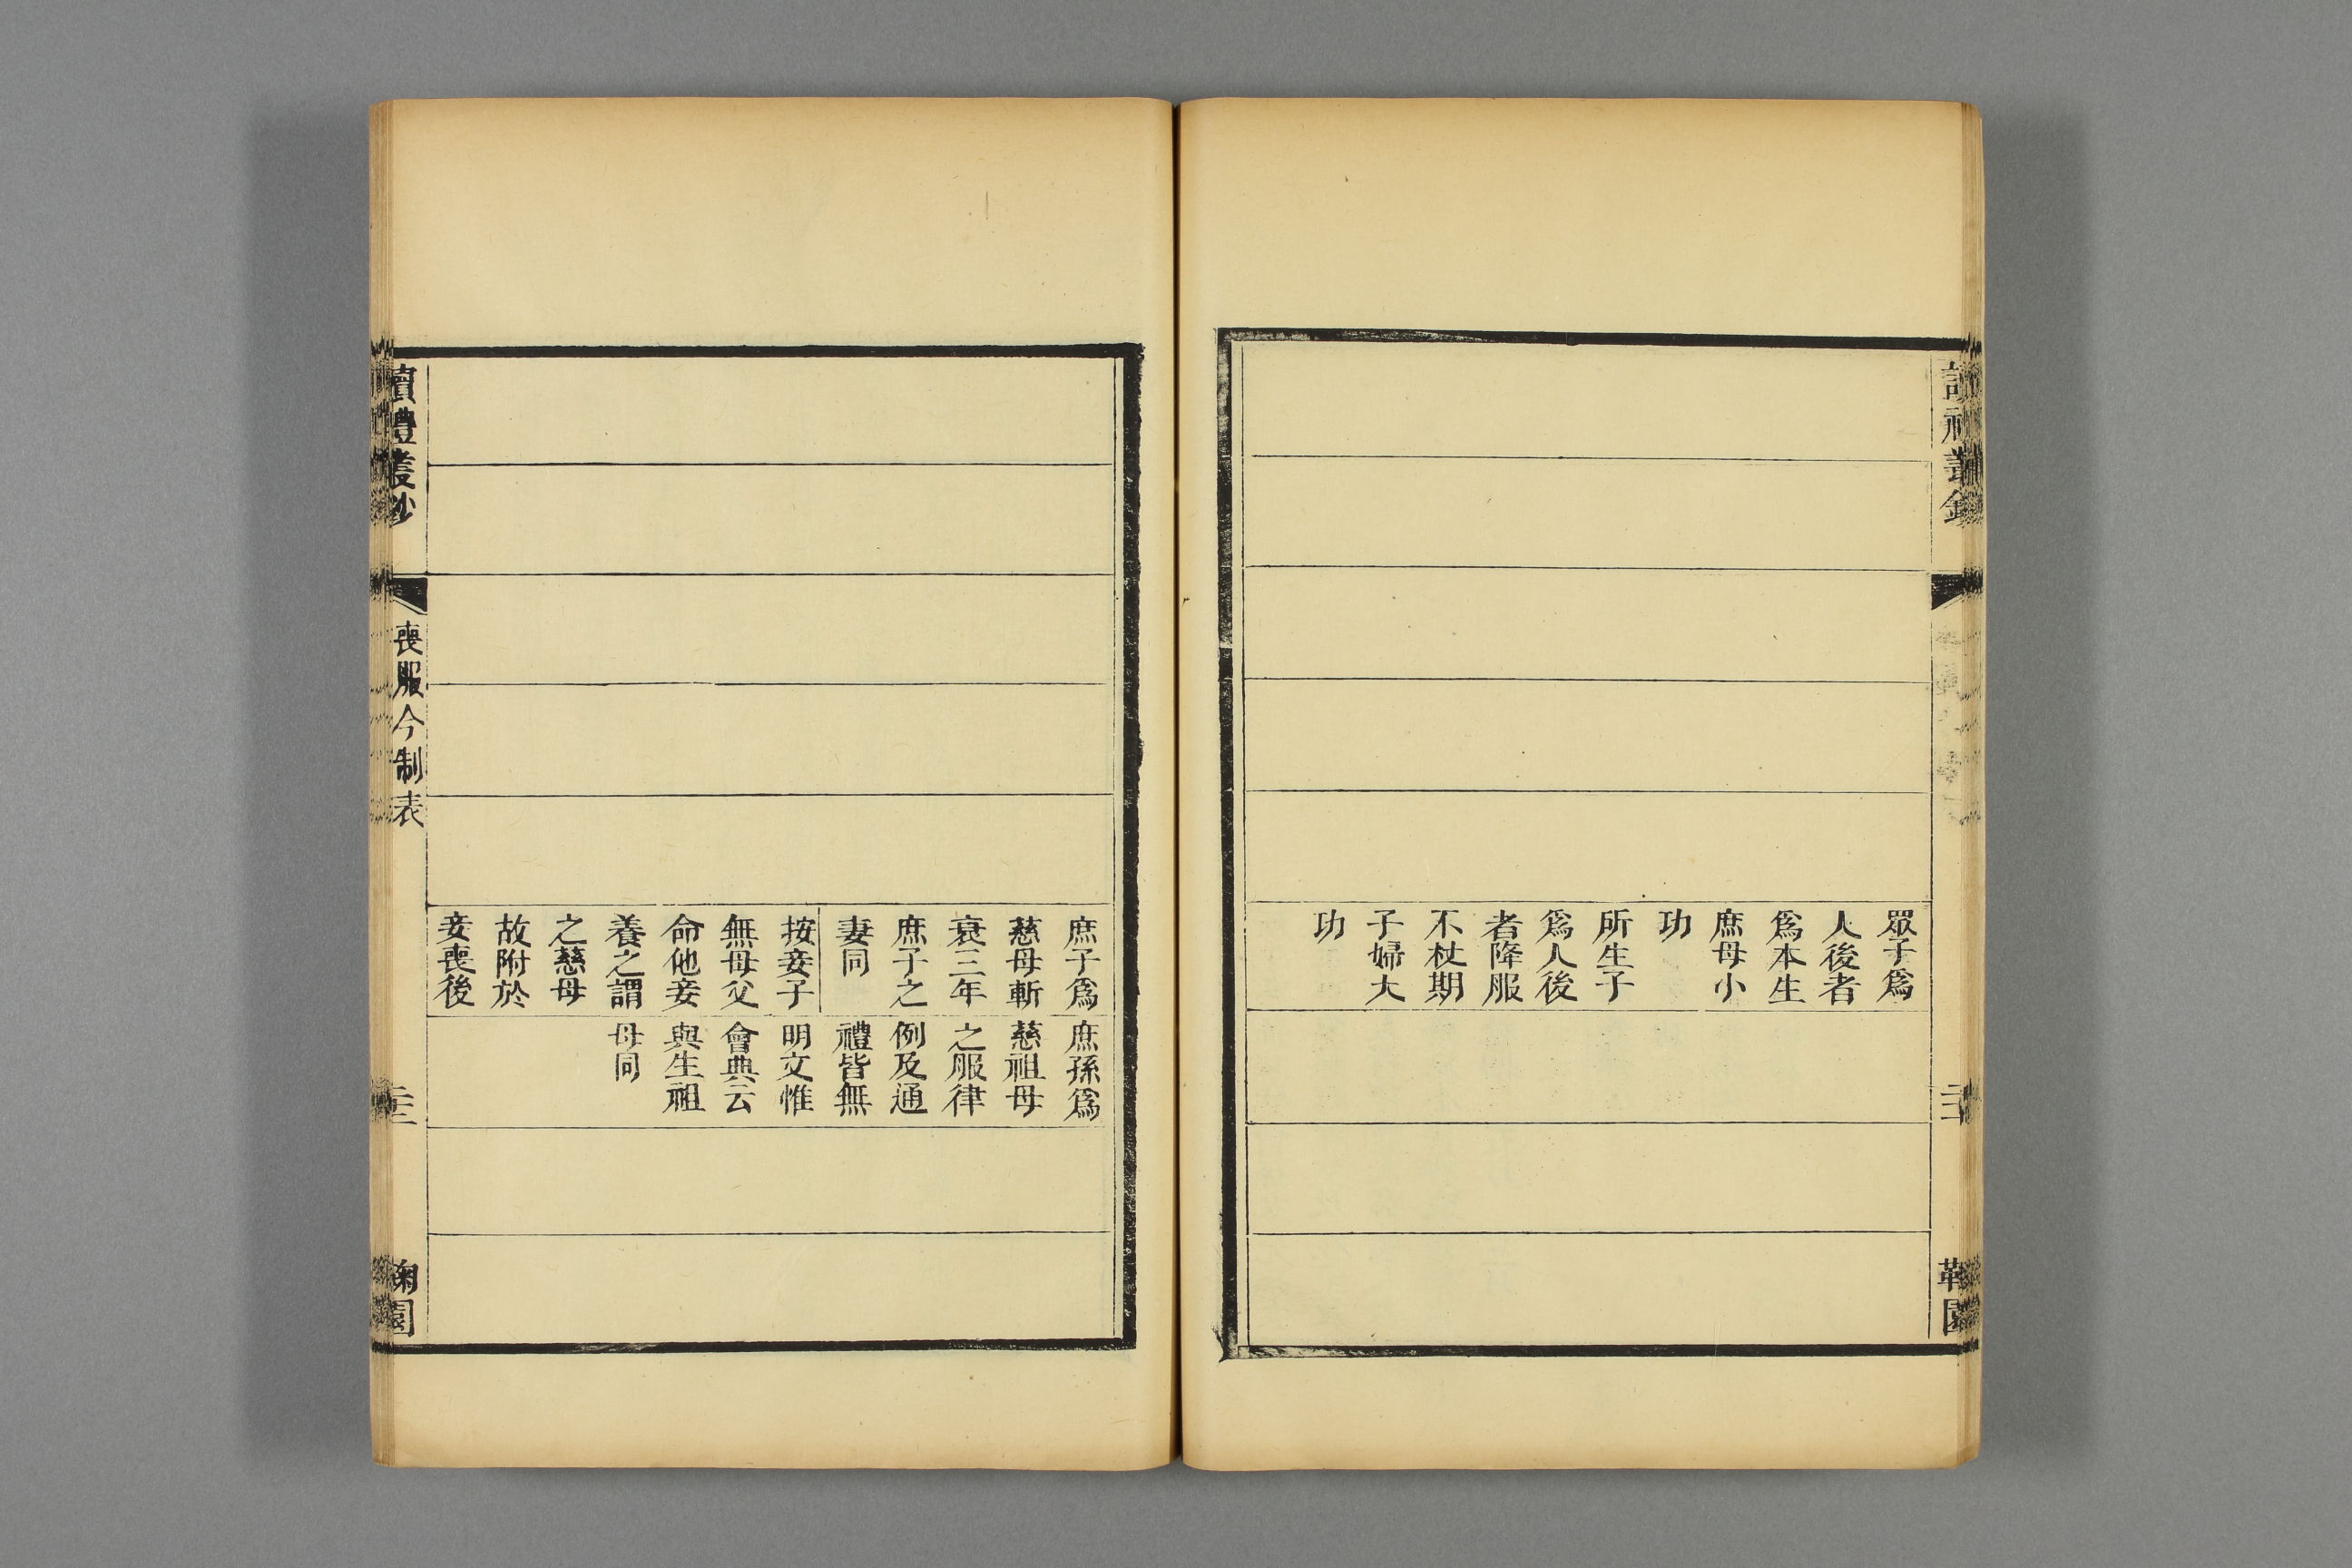 眾子爲
人後者
爲本生
庶母小
功
所生子
爲人後
者降服
不杖期
子婦大
功
庶子爲
慈母斬
衰三年
庶子之
妻同
按妾子
無母父
命他妾
養之謂
之慈母
故附於
妾喪後
庶孫爲
慈祖母
之服律
例及通
禮皆無
明文惟
會典云
與生祖
母同
讀禮叢鈔
喪服今制表